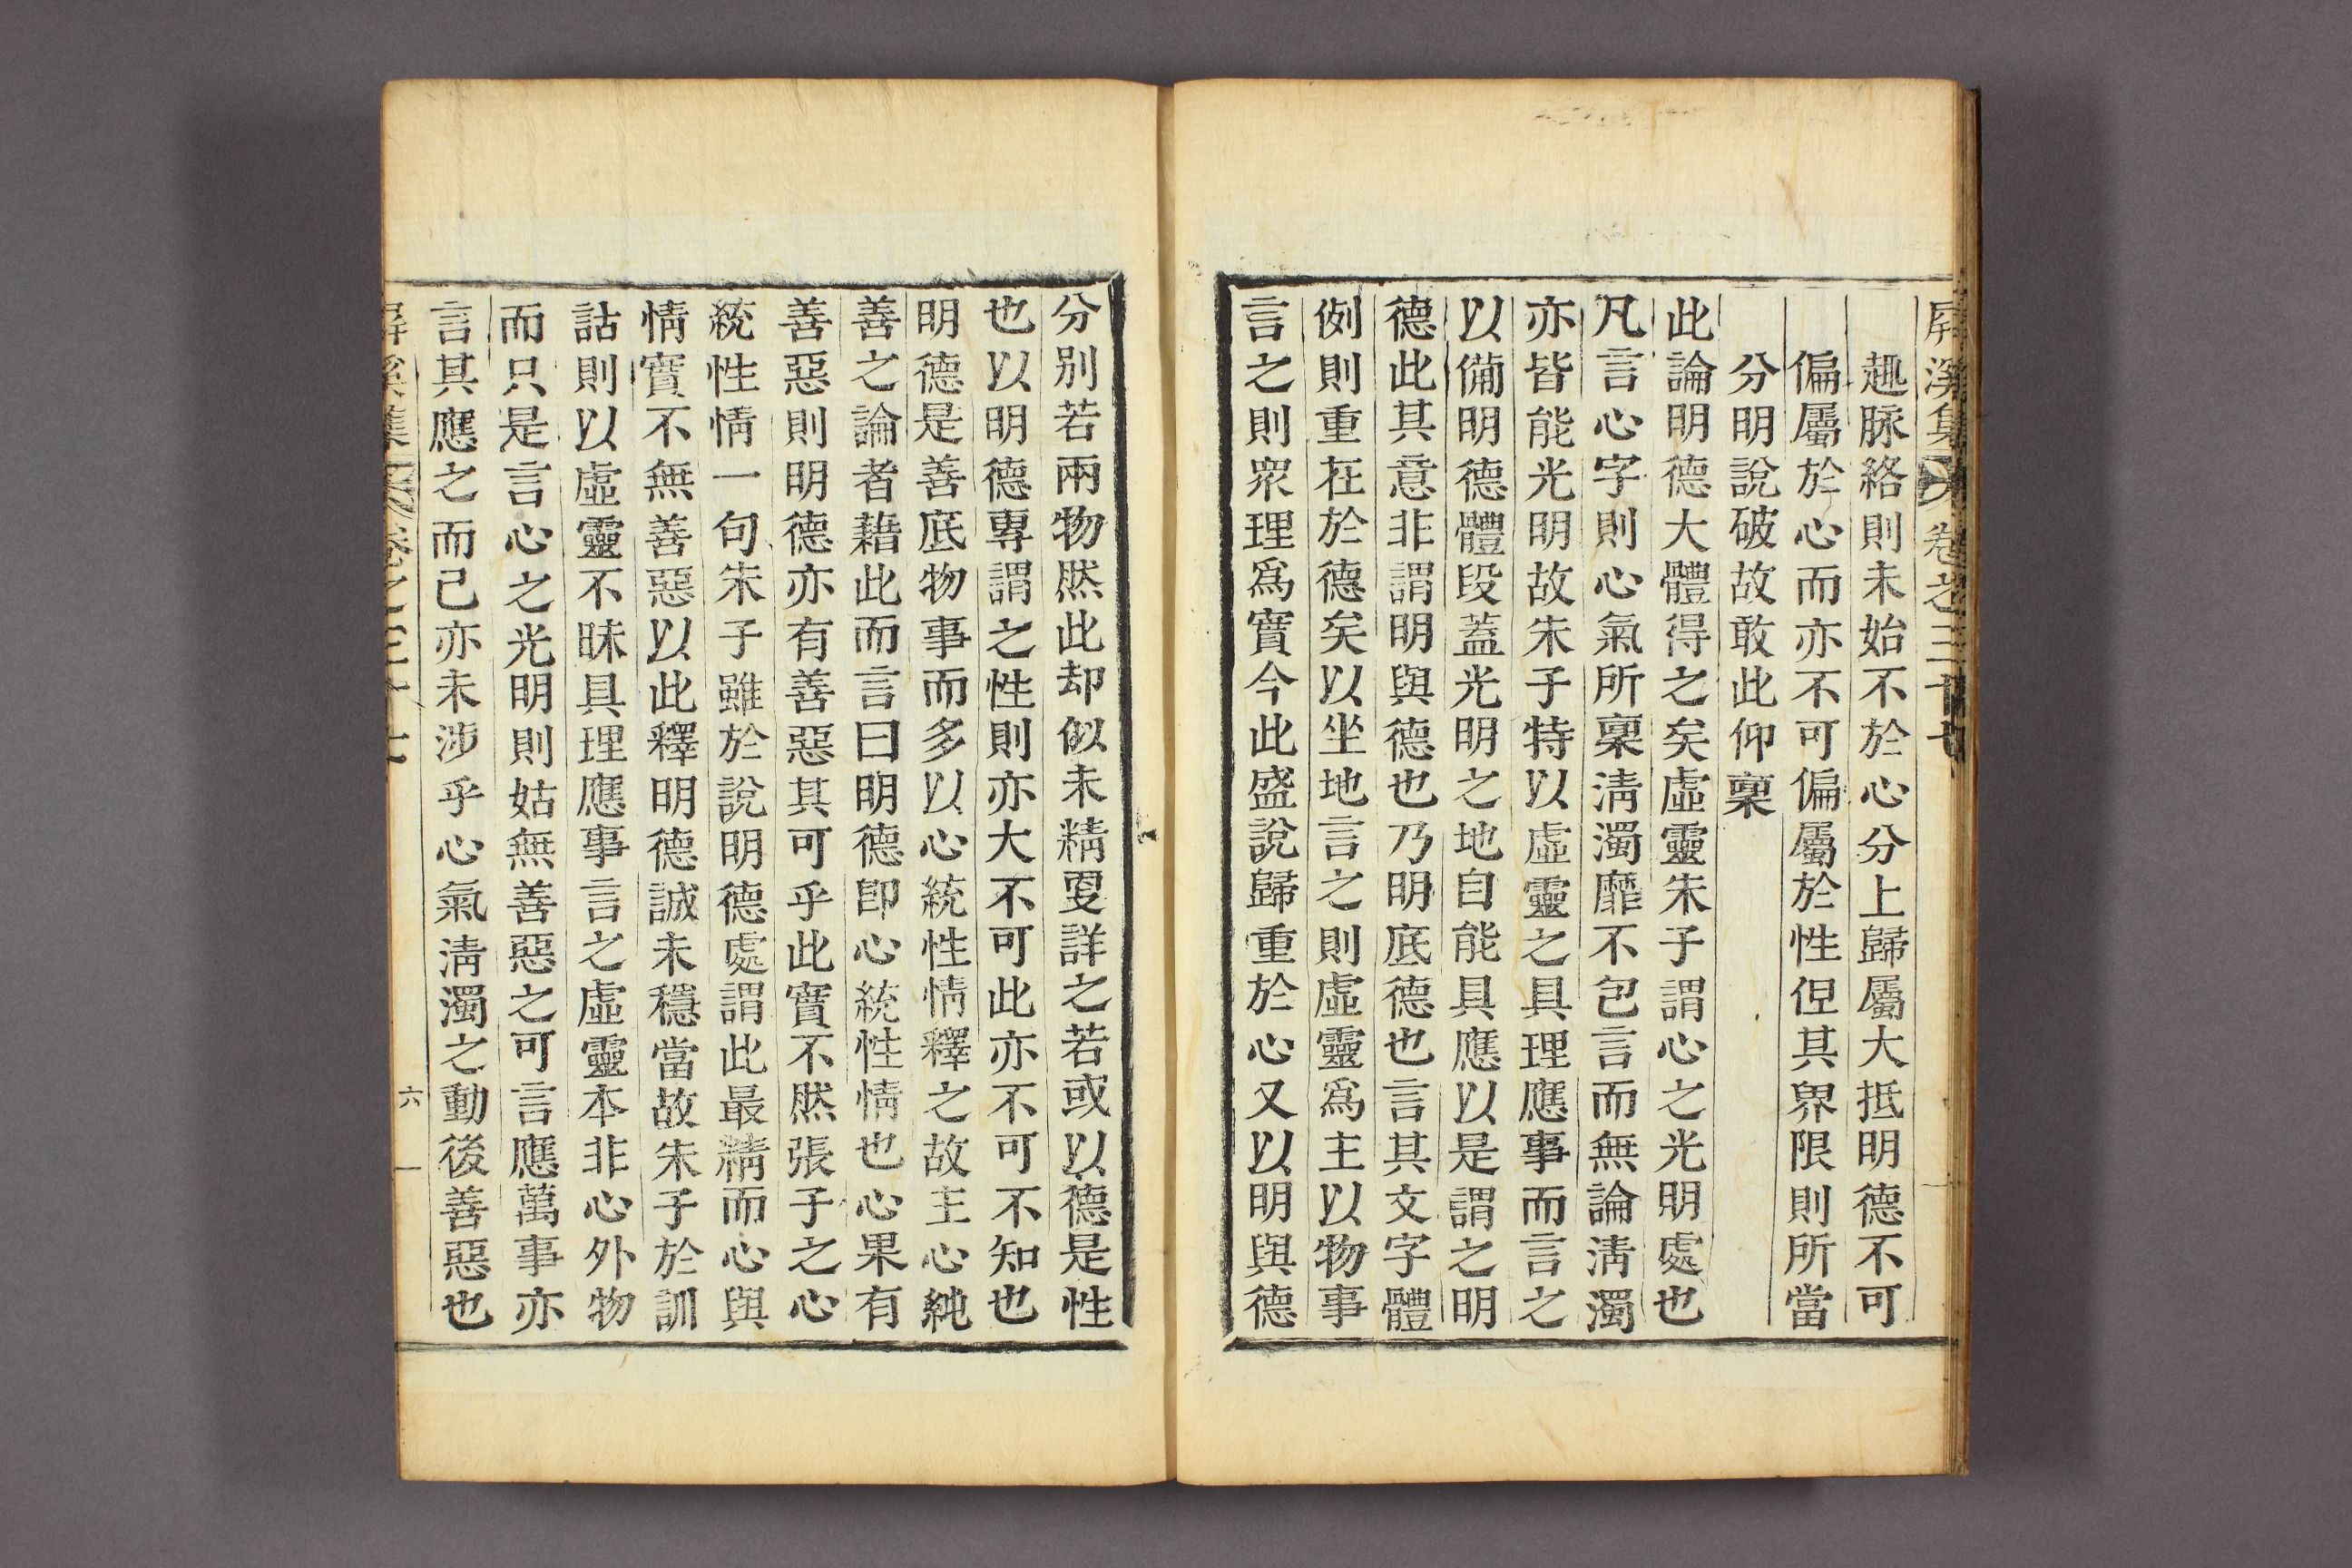 屛溪集 卷之三十七
趣脉絡則未始不於心分上歸屬大抵明德不可
偏屬於心而亦不可偏屬於性但其界限則所當
分明說破故敢此仰稟
此論明德大體得之矣虛靈朱子謂心之光明處也
凡言心字則心氣所稟淸濁靡不包言而無論淸濁
亦皆能光明故朱子特以虛靈之具理應事而言之
以備明德體段蓋光明之地自能具應以是謂之明
德此其意非謂明與德也乃明底德也言其文字體
例則重在於德矣以坐地言之則虛靈爲主以物事
言之則衆理爲實今此盛說歸重於心又以明與德
分別若兩物然此却似未精更詳之若或以德是性
也以明德專謂之性則亦大不可此亦不可不知也
明德是善底物事而多以心統性情釋之故主心純
善之論者藉此而言曰明德卽心統性情也心果有
善惡則明德亦有善惡其可乎此實不然張子之心
統性情一句朱子雖於說明德處謂此最精而心與
情實不無善惡以此釋明德誠未穩當故朱子於訓
詁則以虛靈不昧具理應事言之虛靈本非心外物
而只是言心之光明則姑無善惡之可言應萬事亦
言其應之而已亦未涉乎心氣淸濁之動後善惡也
屛溪集 卷之三十七 六